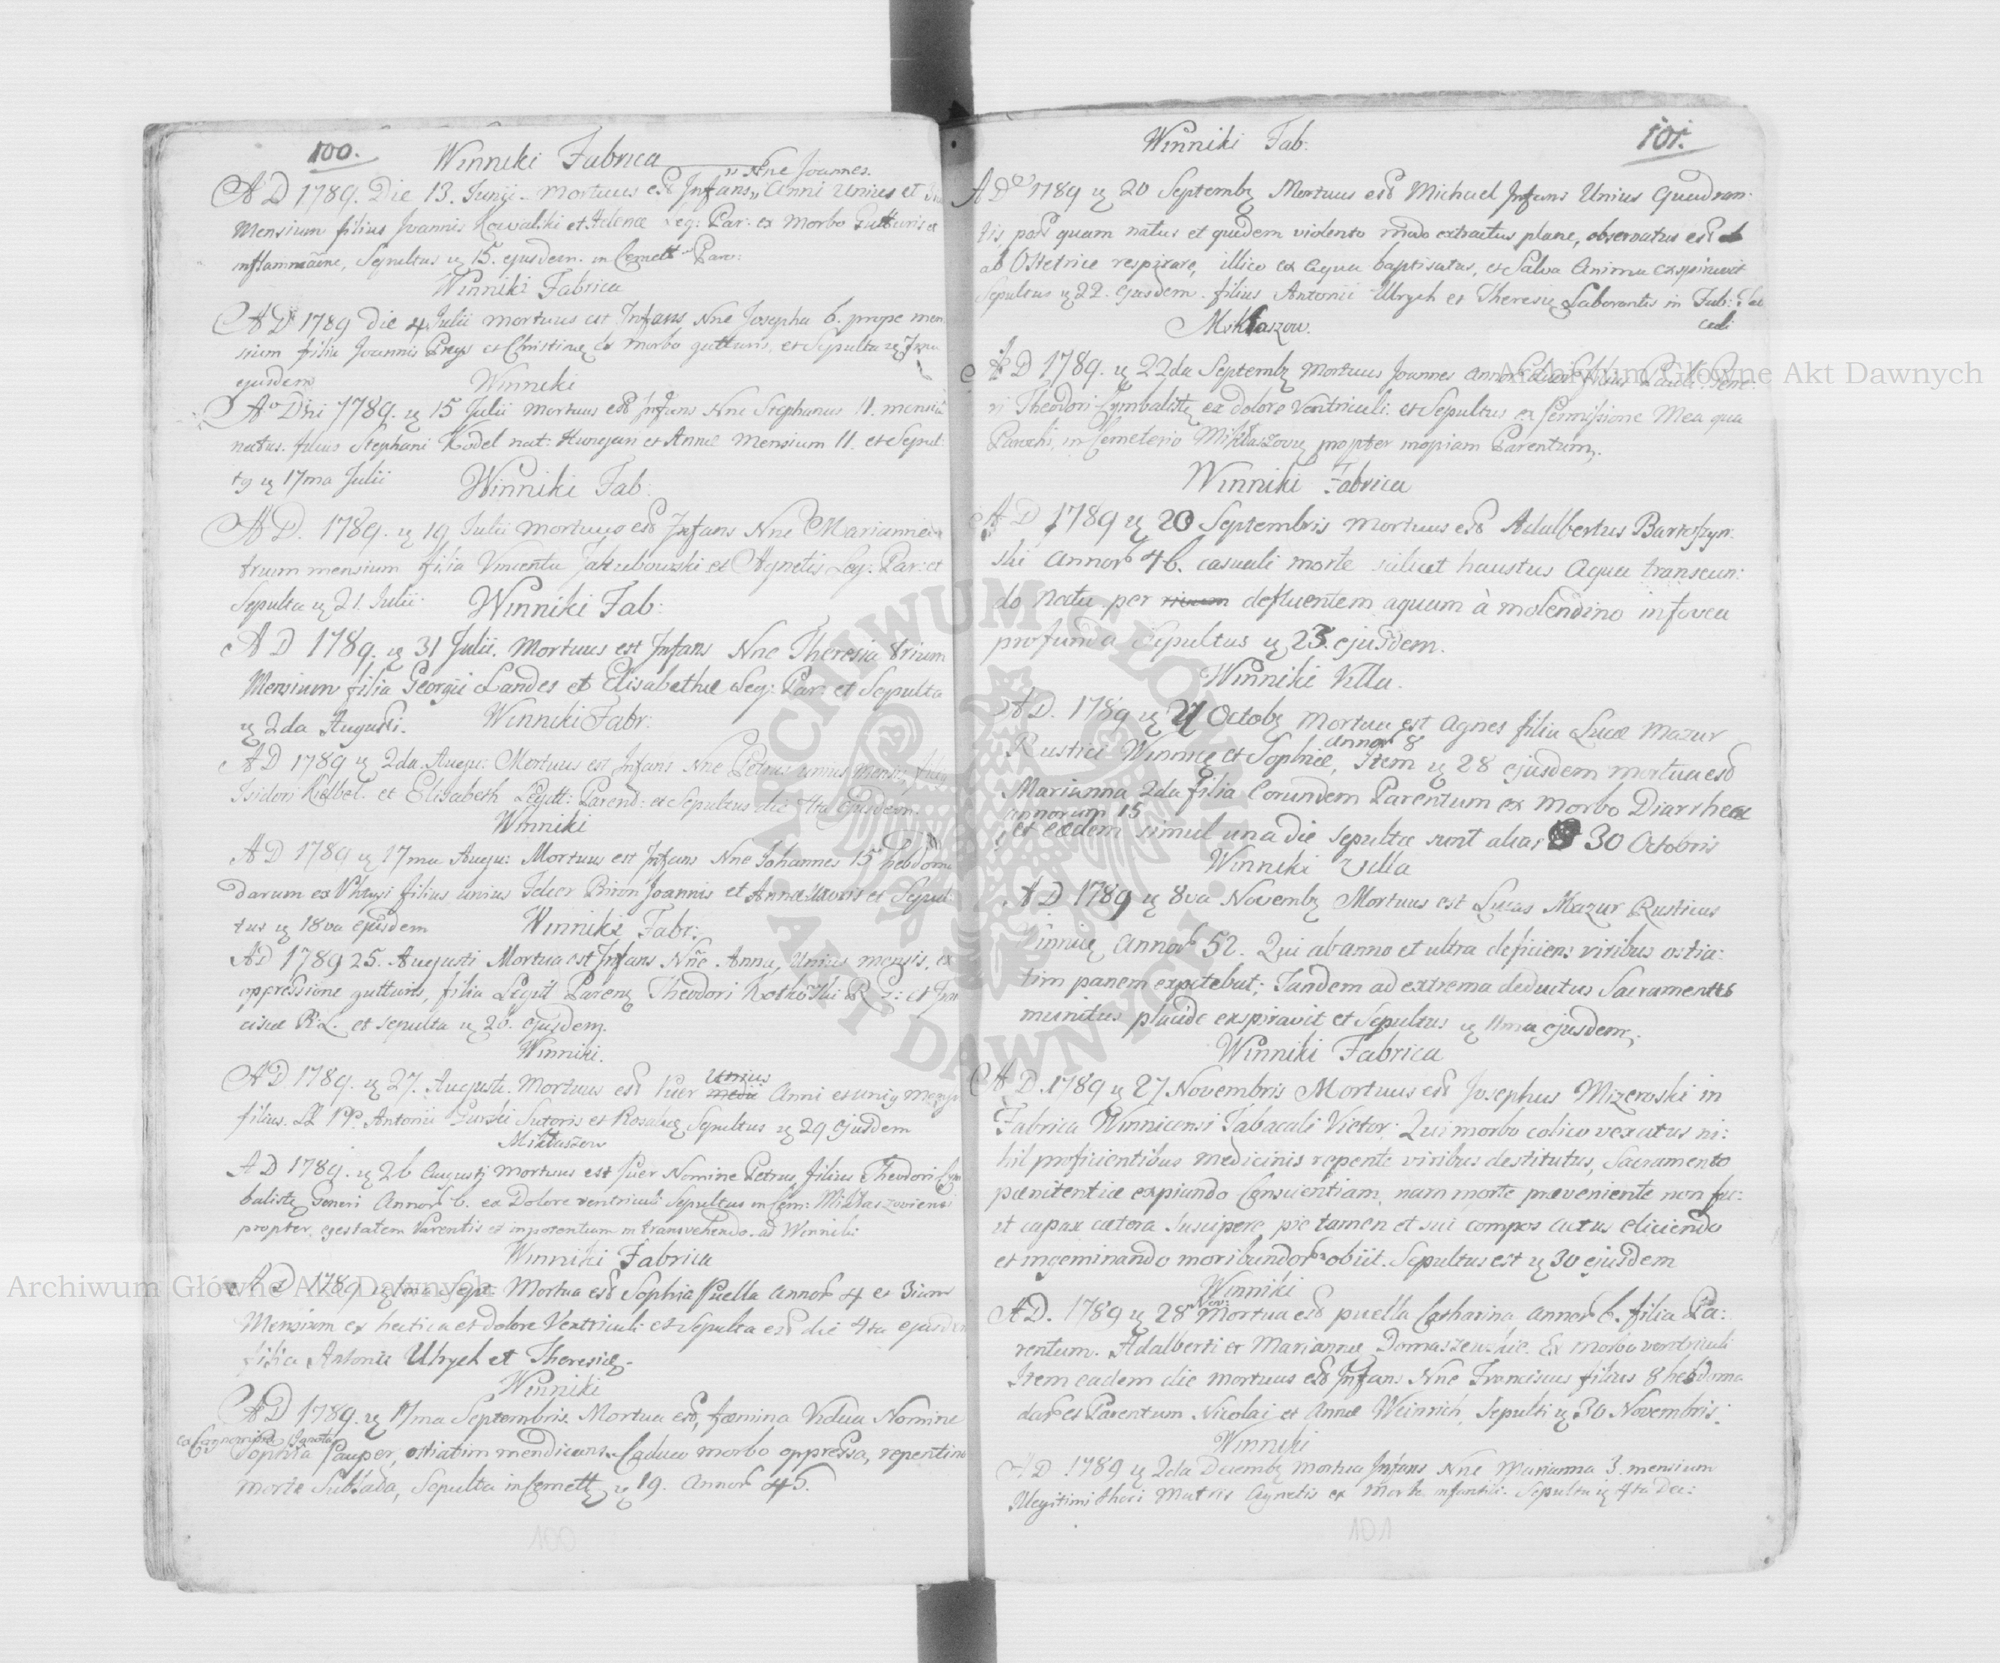 100.
Winniki Fabrica
Nne Joannes.
AD 1789. Die 13. Junii. Mortuus est Infans Anni Unius et
Mensium filius Joannis Kowalski et Helenae Leg: Par: ex morbo Gutturis et
inflammatione, Sepultus 15. ejusdem. in Cemett Paro:
Winniki Fabrica
AD 1789 Die 4 Julii mortuus est Infans Nne Josepha 6. prope men
sium filia Joannis Preys et Christinae ex morbo gutturis, et Sepulta
ejusdem
Winniki
Ao Dni 1789. 15 Julii mortuus est Infans Nne Stephanus 11. mensium
natus. filius Stephani Kodel nat: Hungari et Annae Mensium 11. et Sepul:
tus 17ma Julii
Winniki Fab:
AD. 1789. 19 Julii mortuus est Infans Nne Marianna
trium mensium filia Vincentii Jakubowski et Agnetis Leg: Par: et
Sepulta 21. Julii
Winniki Fab:
AD 1789. 31 Julii. Mortuus est Infans Nne Theresia trium
Mensium filia Georgii Landes et Elisabethae Leg: Par: et Sepulta
2da Augusti.
Winniki Fabr:
AD 1789 2da Augu: Mortuus est Infans Nne Petrus unius mensis filius
Isidori et Elisabeth Legitt: Parent: et Sepultus die 4ta ejusdem.
Winniki
AD 1789 17ma Augu: Mortuus est Infans Nne Johannes 15 hebdoma
darum ex Phtysi filius unius Joannis et Annae Uxoris et Sepul
tus 18va ejusdem
Winniki Fabr:
AD 1789 25. Augusti Mortua est Infans Nne Anna, Unius mensis, ex
oppressione gutturis, filia Legitt Paren Theodori R G: et Fran
ciscae R: L. et sepulta 26. ejusdem.
Winniki.
AD 1789. 27. Augusti. Mortuus est Puer Unius Anni et unius Mensis
filius. LL PP. Antonii Gurski Sutoris et Rosaliae Sepultus 29 ejusdem
Miklaszow
AD 1789. 26 Augusti mortuus est Puer Nomine Petrus filius Theodori Cym
balistae Generi Annor 6. ex Dolore ventriculi Sepultus in Cem: Miklaszoviensi
propter egestatem Parentis et inpotentiam in transvehendo ad Winniki
Winniki Fabrica
AD 1789 1ma Sept. Mortua est Sophia Puella Annor 4 et 3ium
Mensium ex hectica et dolore Ventriculi et Sepulta est die 4ta ejusdem
filia Antonii Ulrych et Theresiae
Winniki
AD 1789. 17ma Septembris. Mortua est, faemina Vidua Nomine
Sophia Pauper, ostiatim mendicans Caduco morbo oppressa, repentina
morte Sublata, Sepulta in Cemett 19. Annor 45.
100
101.
Winniki Fab:
AD 1789 20 Septemb Mortuus est Michael Infans Unius Quadran:
tis, post quam natus et quidem violento modo extractus plane, observatus est
ab Ostetrice respirare, illico ex aqua baptisatus, et Salva Anima exspiravit
Sepultus 22. ejusdem. filius Antonii Ulrych et Theresiae Laborantis in Fab: Ta
cali
Miklaszow.
AD 1789. 22da Septemb Mortuus Joannes Annor filius Pauli Gene:
ri Theodori Cymbalistae ex dolore Ventriculi et Sepultus ex permissione Mea qua
Parochi, in Cemeterio Miklaszovie propter inopiam Parentum.
Winniki Fabrica
AD 1789 20 Septembris mortuus est Adalbertus Bartoszyn:
ski Annor 46. casuali morte scilicet haustus Aqua transeun:
do noctu per defluentem aquam à molendino in fovea
profunda Sepultus 23. ejusdem.
Winniki Villa.
AD. 1789 27 Octob Mortua est Agnes filia Lucae Mazur
Rustici Winnicae et Sophiae, annor 8 Item 28 ejusdem mortua est
Marianna 2da filia Eorundem Parentum ex morbo Diarrhea
annorum 15
et eaedem simul una die sepultae sunt alias 30 Octobris
Winniki Villa
AD 1789 8va Novemb Mortuus est Lucas Mazur Rusticus
Winnicae Annor 52. Qui ab anno et ultra deficiens viribus ostia:
tim panem expetebat; Tandem ad extrema deductus Sacramentis
munitus placide exspiravit et Sepultus 11ma ejusdem.
Winniki Fabrica
AD. 1789 27. Novembris Mortuus est Josephus Mizeroski in
Fabrica Winnicensi Tabacali Vietor; Qui morbo colico vexatus ni:
hil proficientibus medicinis repente viribus destitutus, Sacramento
paenitentiae expiando Conscientiam, nam morte praeveniente non fu:
it capax caetera Suscipere, pie tamen et sui compos actus eliciendo
et ingeminando moribundor obiit. Sepultus est 30 ejusdem
Winniki
AD. 1789 28 Nov: Mortua est puella Catharina annor 6. filia Pa:
rentum. Adalberti et Mariannae Domaszewskie. Ex morbo ventriculi
Item eadem die mortuus est Infans Nne Franciscus filius 8 hebdoma
dar et Parentum Nicolai et Annae Weinrich, Sepulti 30 Novembris.
Winniki
AD 1789 2da Decemb mortua Infans Nne Marianna 3. mensium
Illegitimi thori Matris Agnetis ex Morbo infantili. Sepulta 4ta Dec:
101
Archiwum Główne Akt Dawnych
Archiwum Główne Akt Dawnych
ARCHIWUM GŁÓWNE AKT DAWNYCH